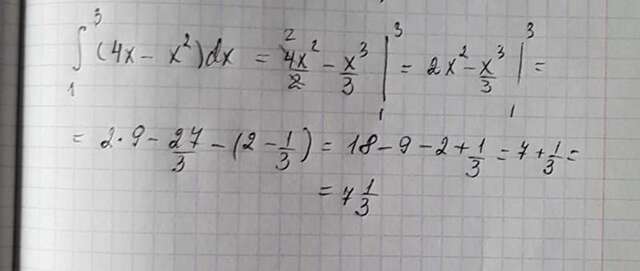 ∫₁³ (4x - x²)dx = 4x²/2 - x³/3 |₁³ = 2x² - x³/3 |₁³ =
= 2·9 - 27/3 - (2 - 1/3) = 18 - 9 - 2 + 1/3 = 7 + 1/3 =
= 7 1/3